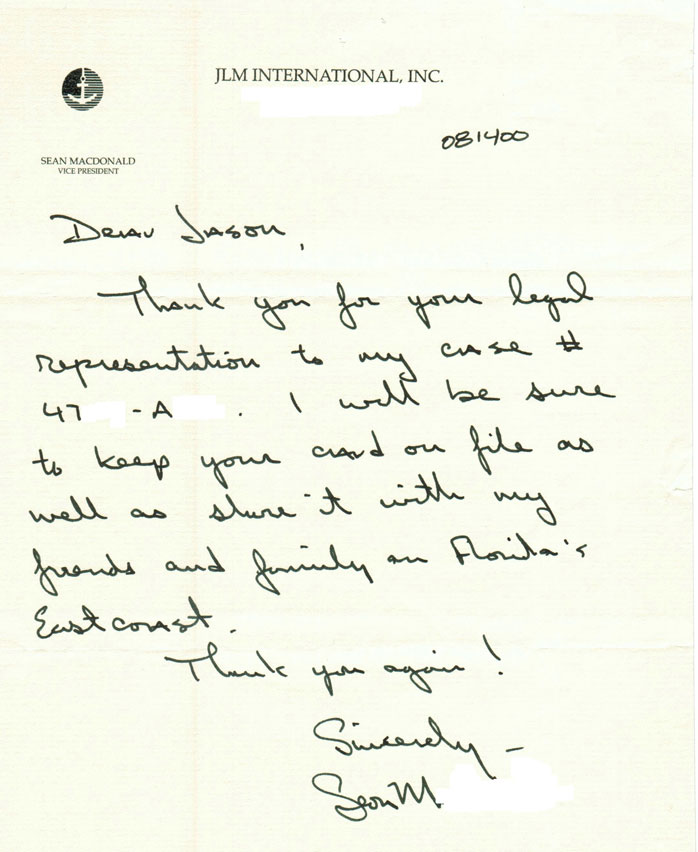 JLM INTERNATIONAL, INC.
081400
SEAN MACDONALD
VICE PRESIDENT
Dear Jason,
Thank you for your legal
representation to my case #
47 -A .  I will be sure
to keep your card on file as
well as share it with my
friends and family on Florida's
East coast.
Thank you again!
Sincerely -
Sean M.